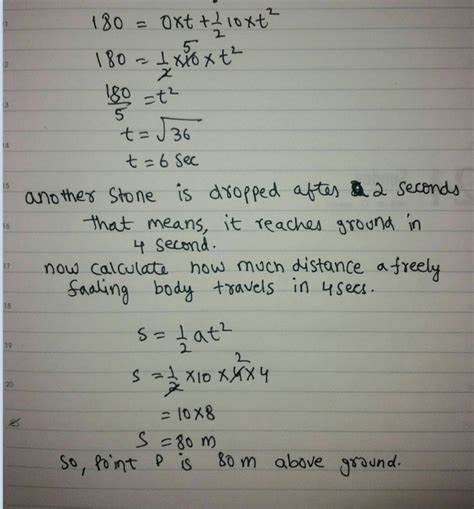 180 = 0xt + 1/2 10 x t²
180 = 1/2 x 10 5 x t²
180/5 = t²
t = √36
t = 6 Sec
another Stone is dropped after 2 seconds
that means, it reaches ground in
4 second.
now calculate how much distance a freely
faaling body travels in 4 secs.
S = 1/2 at²
S = 1/2 x 10 x 4 2 x 4
= 10 x 8
S = 80 m
So, Point P is 80 m above ground.